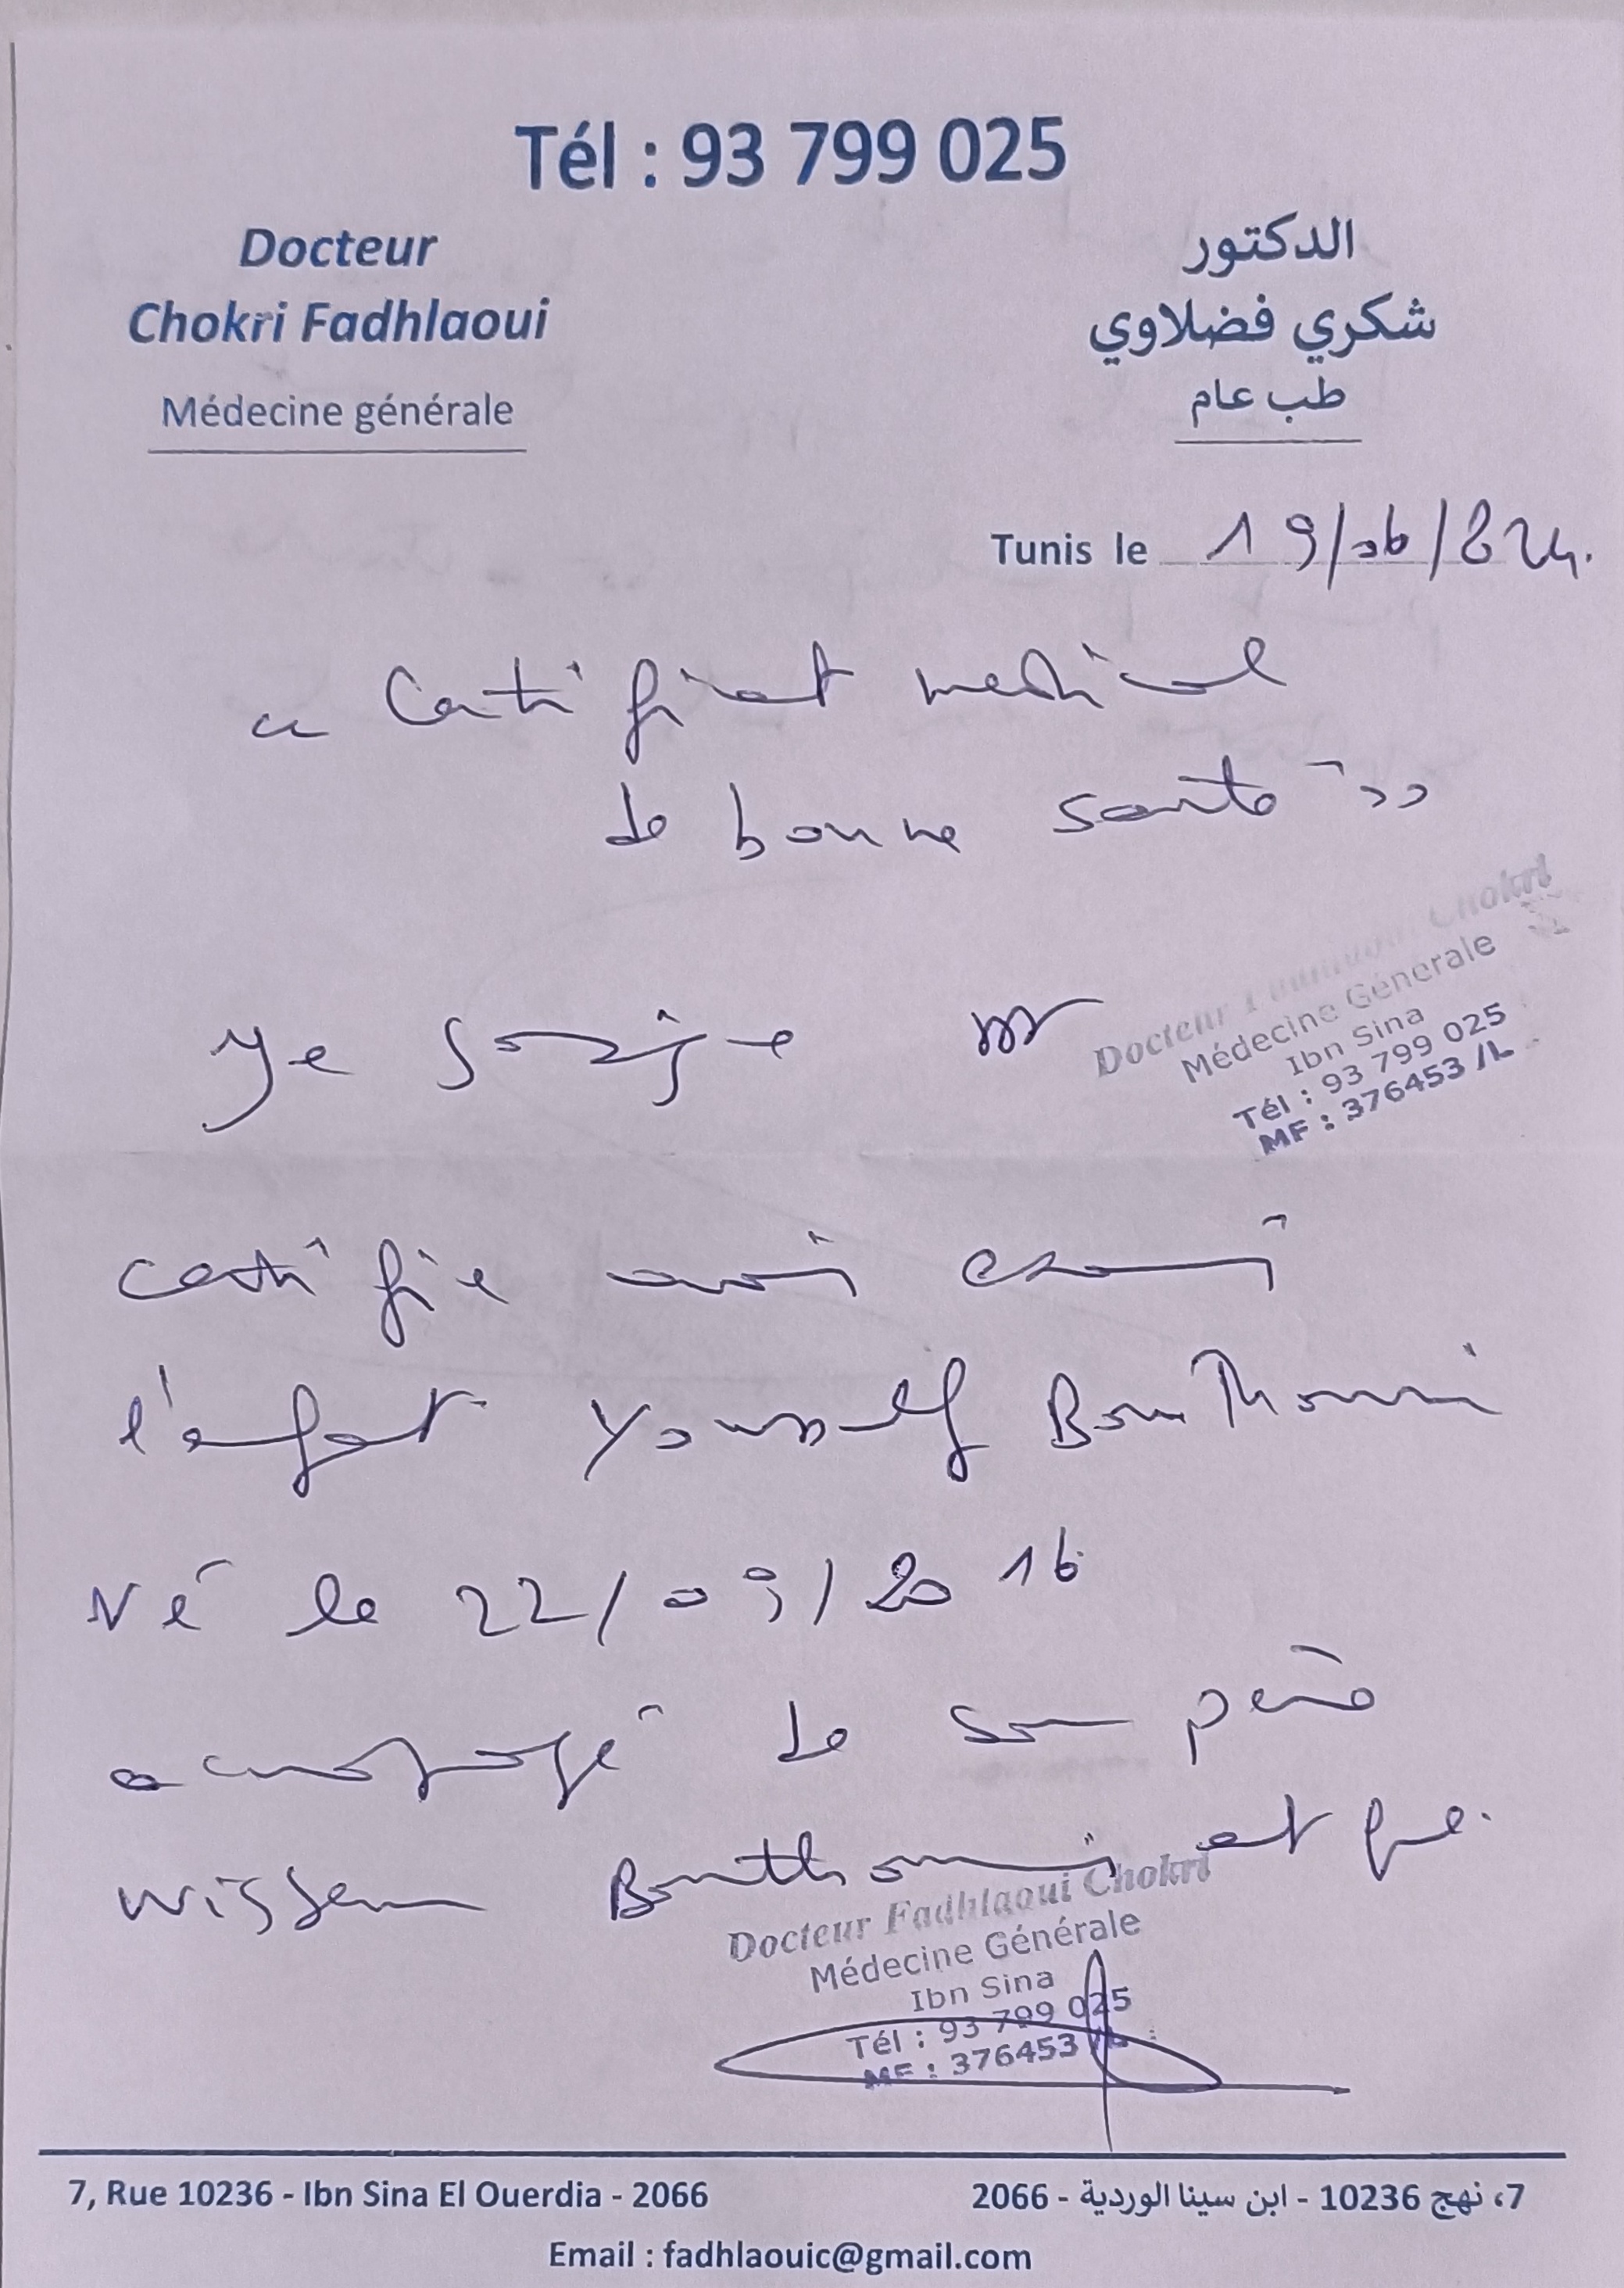 Tél : 93 799 025
Docteur
Chokri Fadhlaoui
Médecine générale
الدكتور
شكري فضلاوي
طب عام
Tunis le 19/06/2024.
« Certificat medical
de bonne santé »
Je soussigné Dr
Docteur Fadhlaoui Chokri
Médecine Générale
Ibn Sina
Tél : 93 799 025
MF : 376453 /L
certifie avoir examiné
l'enfant Youssef Bouthouri
Né le 22/09/2016
accompagné de son père
Wissem Bouthouri et que.
Docteur Fadhlaoui Chokri
Médecine Générale
Ibn Sina
Tél : 93 799 025
MF : 376453 /L
7, Rue 10236 - Ibn Sina El Ouerdia - 2066
7، نهج 10236 - ابن سينا الوردية - 2066
Email : fadhlaouic@gmail.com